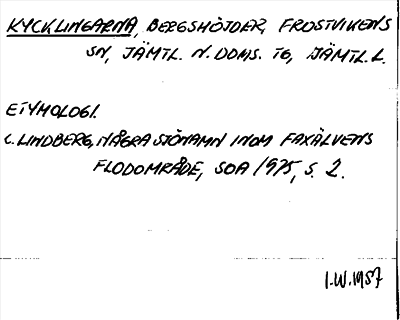 KYCKLINGARNA, BERGSHÖJDER, FROSTVIKENS
SN, JÄMTL. N. DOMS. TG, JÄMTL. L.
ETYMOLOGI.
C. LINDBERG, NÅGRA SJÖNAMN INOM FAXÄLVENS
FLODOMRÅDE, SOA 1975, S. 2.
I.W. 1987